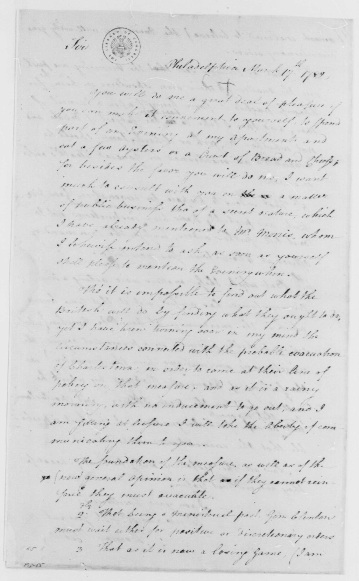 Sir
Philadelphia March 17th 1782.
You will do me a great deal of pleasure if
you can make it convenient to yourself to spend
part of an Evening at my apartments and
eat a few oysters or a Crust of Bread and Cheese
for besides the favor you will do me, I want
much to consult with you on a matter
of public business tho' of a secret nature, which
I have already mentioned to Mr Morris, whom
I likewise intend to ask as soon as yourself
shall please to mention the Evening when.
Tho' it is impossible to find out what the
British will do by finding what they ought to do,
yet I have been turning over in my mind the
circumstances connected with the probable evacuation
of Charlestown in order to come at their line of
policy on that measure, and as it is a rainy
morning, with no inducement to go out, and I
am at leisure I will take the liberty of com
municating them to you.
The foundation of the measure, as well as of the
general opinion is that as if they cannot rein
force they must evacuate
2d That being a provincial post Gen Clinton
must wait either for positive or discretionary orders
3 That as it is now a losing Game, (I am